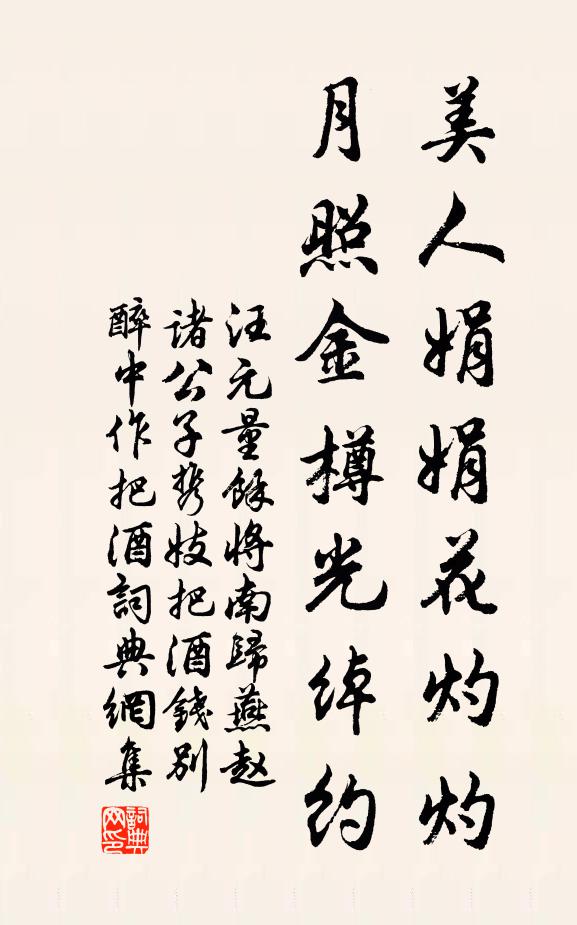 美人娟娟花灼灼
月照金樽光綽約
汪元量餘將南歸燕趙
諸公子攜妓把酒錢別
醉中作把酒詞典網集
詞典網印